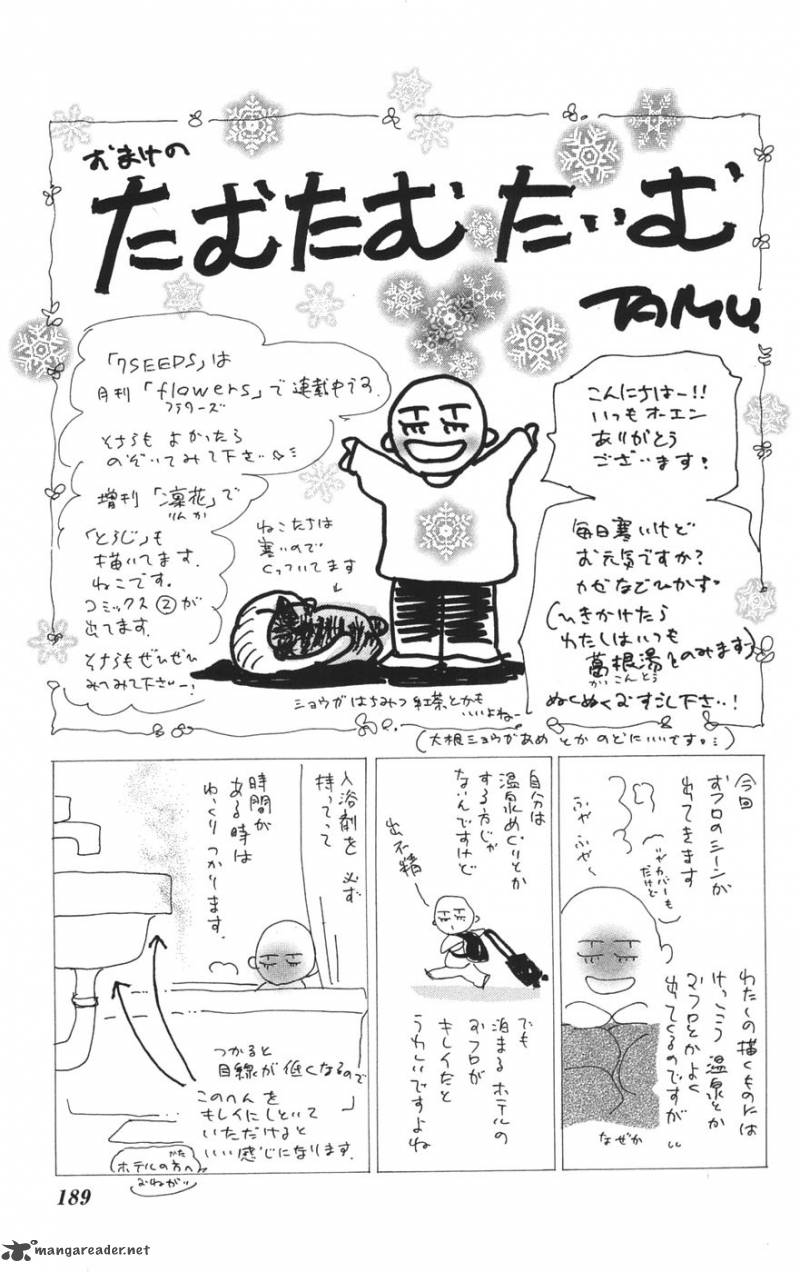 おまけの
たむたむたいむ
TAMU.
こんにちはー!!
いつもオーエン
ありがとう
ございます。
毎日寒いけど
お元気ですか?
カゼなどひかず。
(ひきかけたら
わたしはいつも
葛根湯とのみます)
かっこんとう
ぬくぬくおすごし下さい!
「7SEEDS」は
月刊「flowers」で連載中です。
フラワーズ
そちらもよかったら
のぞいてみて下さい
増刊「凛花」で
りんか
「とらじ」も
描いてます。
ねこです。
コミックス②が
出てます。
そちらもぜひぜひ
みてみて下さいー!
ねこたちは
寒いので
くっついてます
ショウガはちみつ紅茶とかも
いいよねー
(大根ショウガあめとかのどにいいです。)
今回
おフロのシーンが
出てきます
(カバーも
だけど)
ふや ふや〜
わたしの描くものには
けっこう温泉とか
おフロとかよく
出てくるのですが
なぜか
自分は
温泉めぐりとか
する方じゃ
ないんですけど
出不精
でも
泊まるホテルの
おフロが
キレイだと
うれしいですよね
入浴剤を必ず
持ってって
時間が
ある時は
ゆっくりつかります。
つかると
目線が低くなるので
このへんを
キレイにしといて
いただけると
いい感じになります。
ホテルの方へ
かた
おねがい
189
mangareader.net